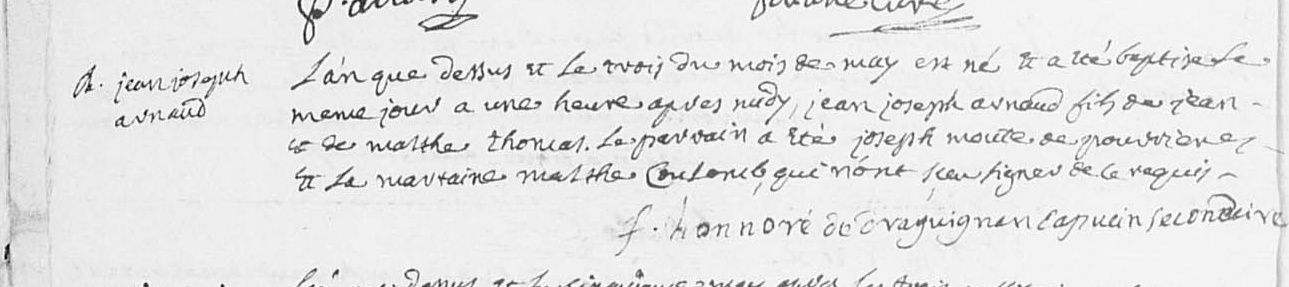 B. jean joseph
arnaud
L'an que dessus et le trois du mois de may est né et a eté baptise le
meme jour a une heure apres midy, jean joseph arnaud fils de jean -
et de marthe thomas. Le parrain a eté joseph de pourrieres
et la marraine marthe Coulomb, qui n'ont sceu signer de ce requis -
f. honnoré de draguignan capucin secondaire